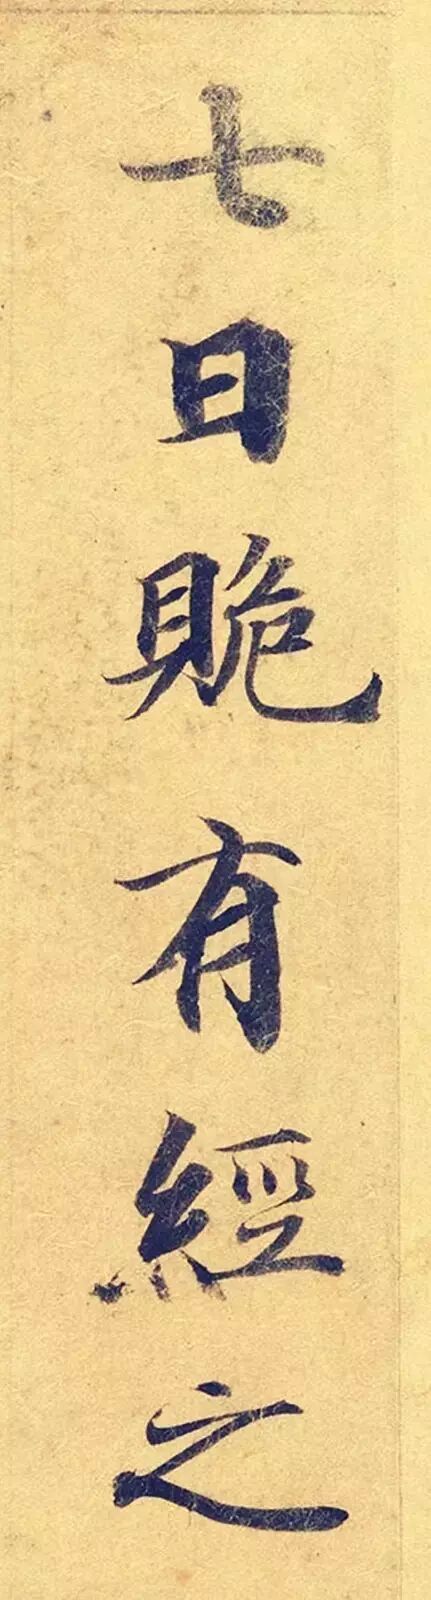 七日脆有經之